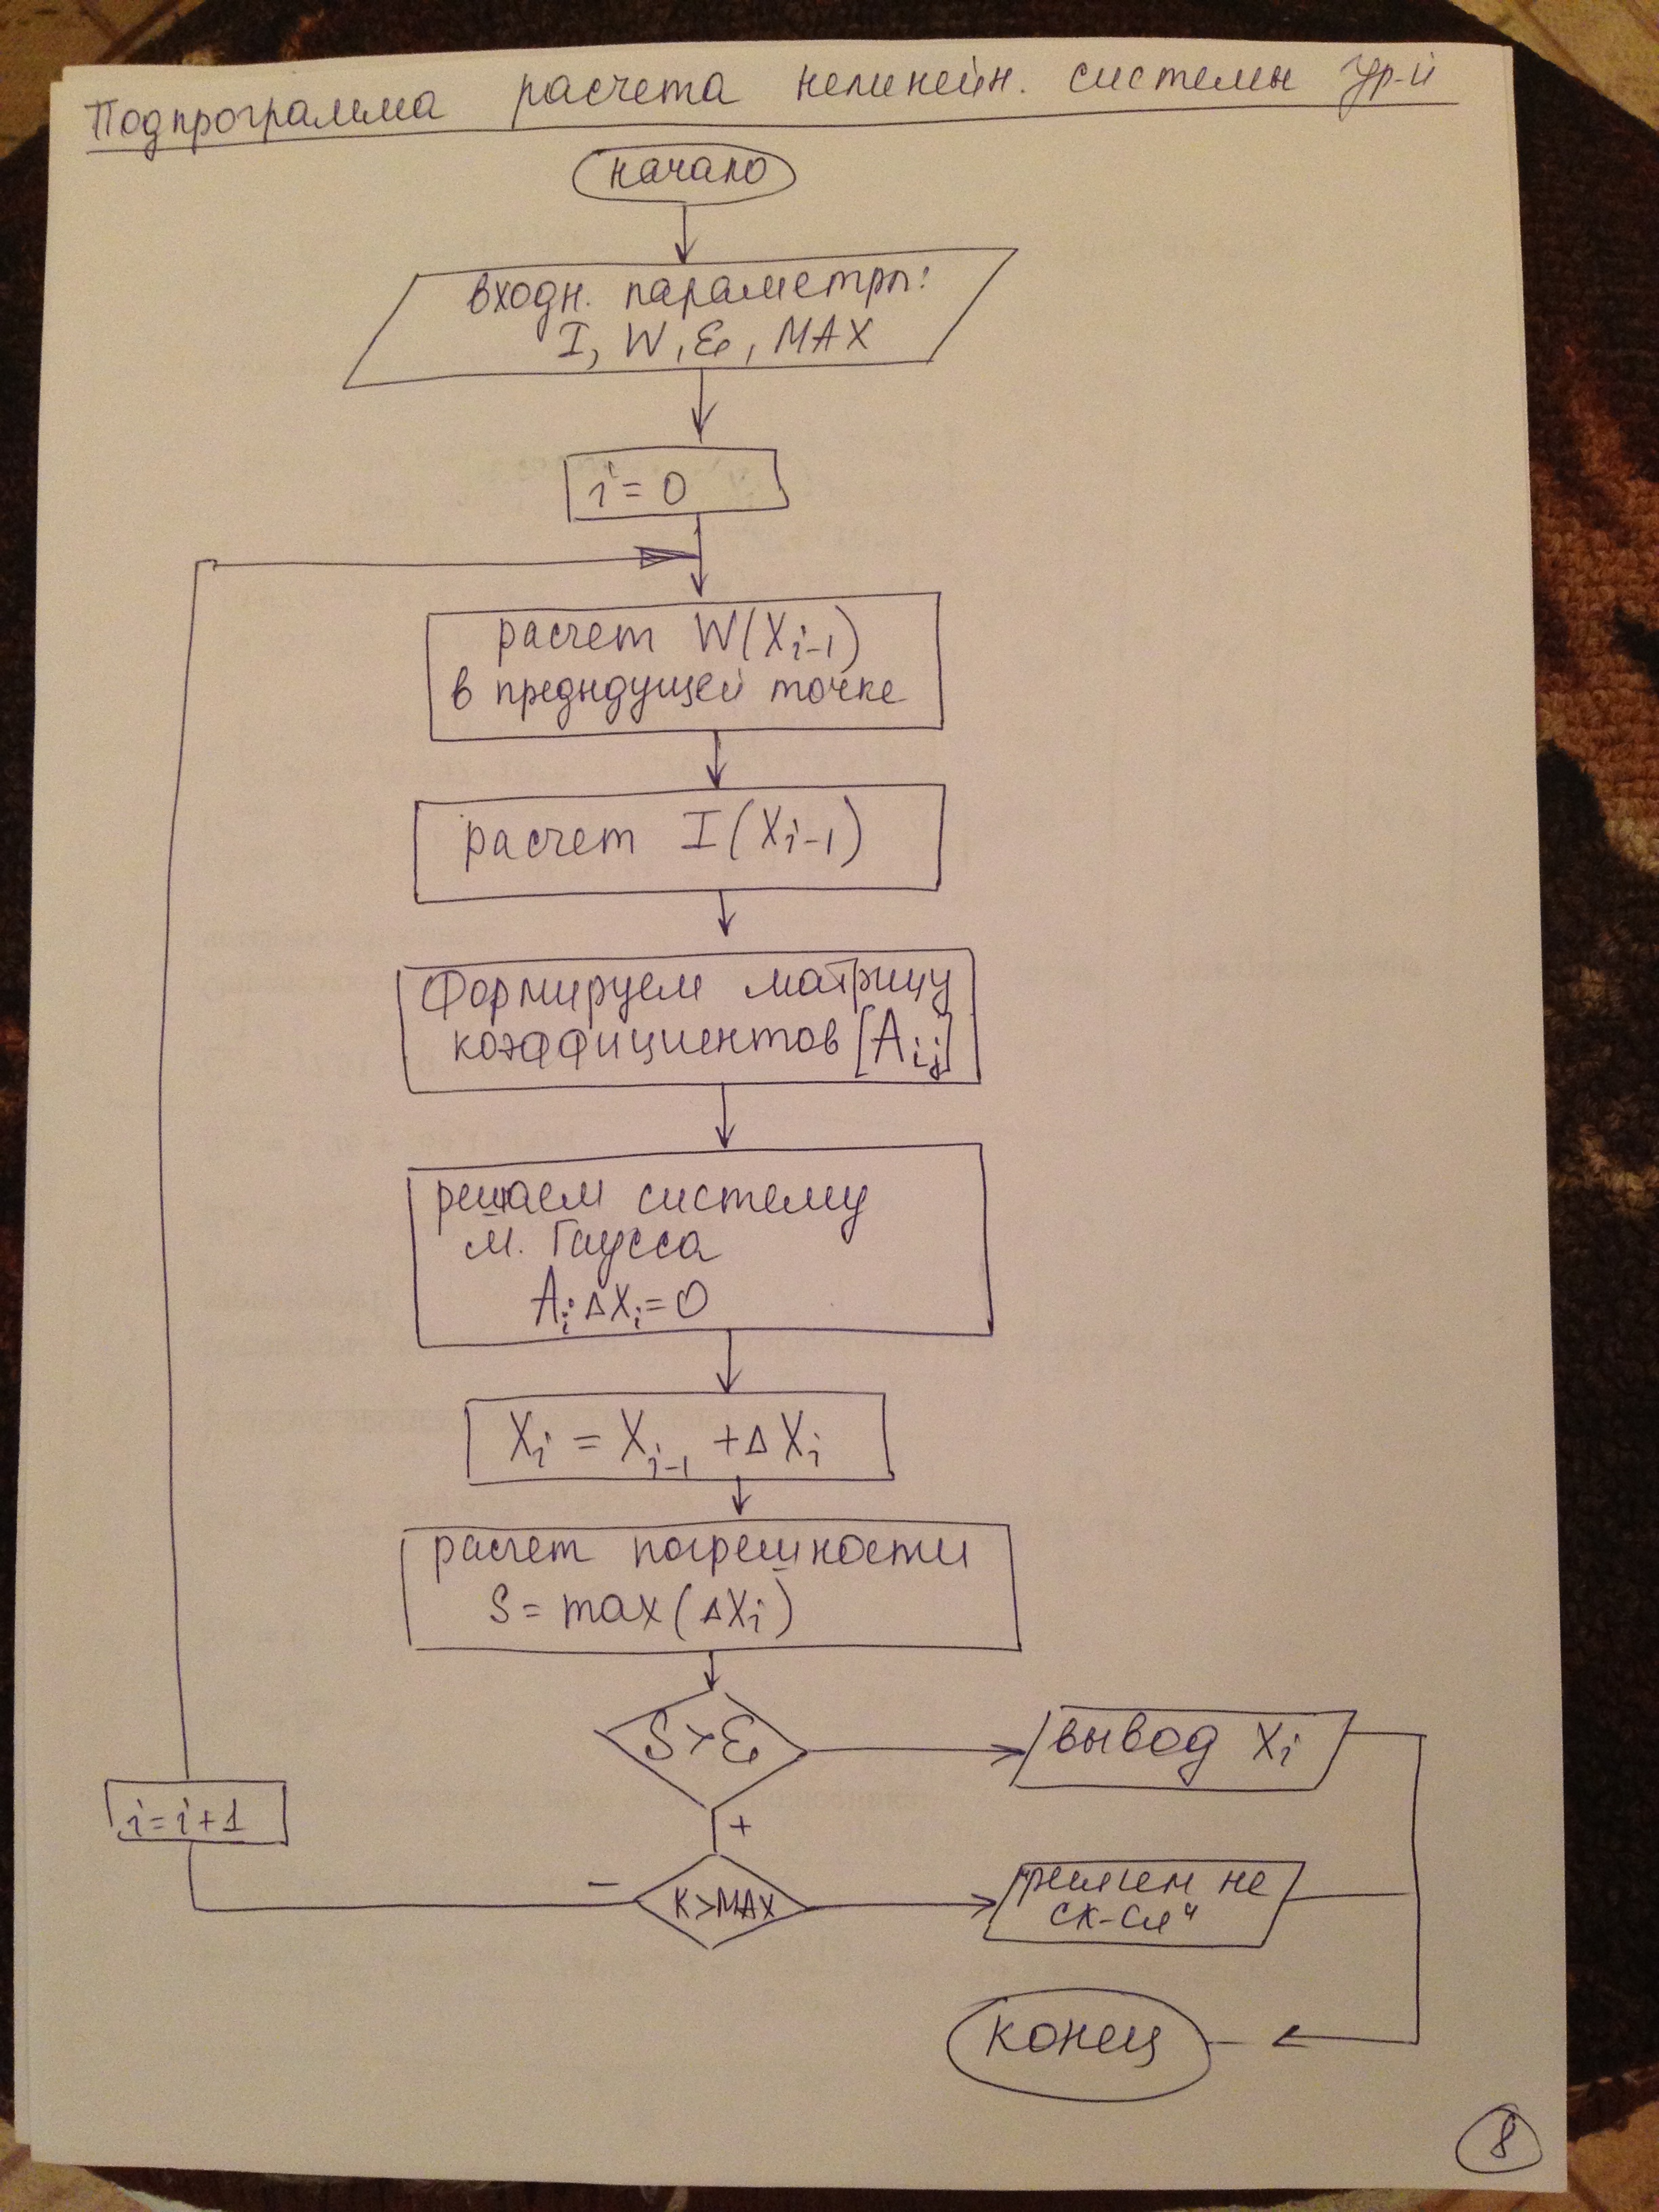 Подпрограмма расчета нелинейн. системы ур-й
начало
входн. параметры:
I, W, ε, MAX
i = 0
расчет W(Xi-1)
в предыдущей точке
расчет I(Xi-1)
Формируем матрицу
коэффициентов [Aij]
решаем систему
м. Гаусса
Ai ΔXi = 0
Xi = Xi-1 + ΔXi
расчет погрешности
S = max(ΔXi)
S > ε
вывод Xi
+
i = i + 1
–
K > MAX
не
конец
8